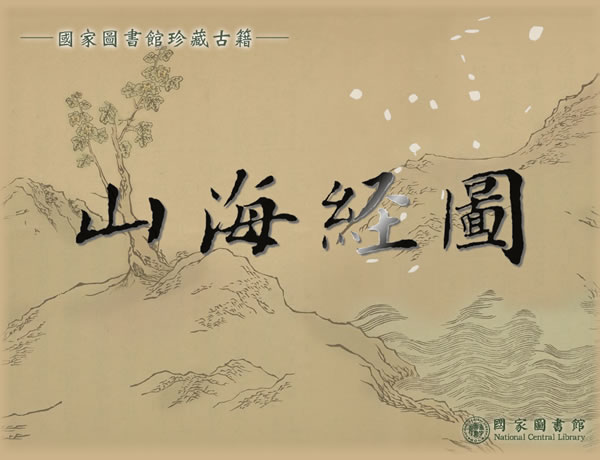 國家圖書館珍藏古籍
山海経圖
國家圖書館
National Central Library